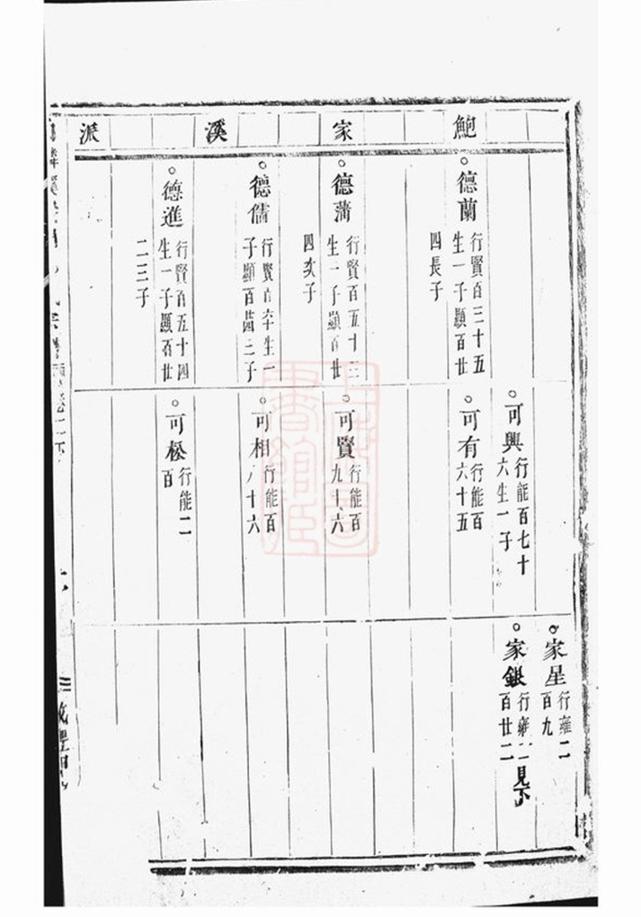 鮑家溪派
德蘭
行賢百三十五
生一子顯百廿
四長子
德蒲
行賢百五十三
生一子顯百廿
四次子
德儒
行賢
生一
子顯百
三子
德進
行賢百五十四
生一子顯百廿
二三子
可興
行能百七十
六生一子
可有
行能百
六十五
可賢
行能百
九十六
可相
行能百
八十六
可松
行能二
百
家星
行雍二
百九
家銀
行雍二
百廿二
見下